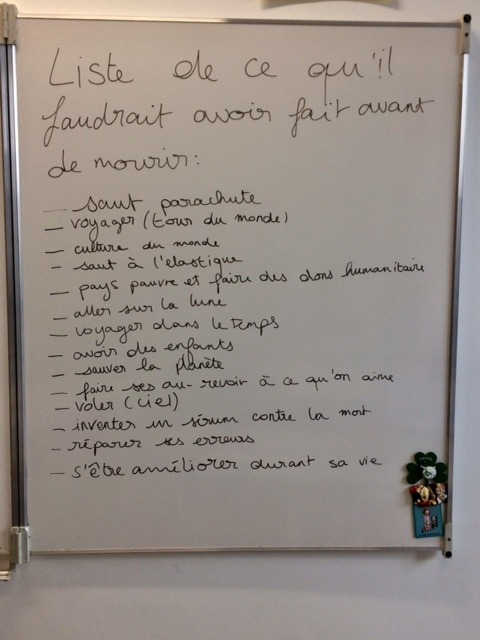 Liste de ce qu'il
faudrait avoir fait avant
de mourir:
— saut parachute
— voyager (tour du monde)
— culture du monde
— saut à l'elastique
— pays pauvre et faire des dons humanitaire
— aller sur la lune
— voyager dans le temps
— avoir des enfants
— sauver la planète
— faire ses au-revoir à ce qu'on aime
— voler (ciel)
— inventer un sérum contre la mort
— réparer ses erreurs
— s'être améliorer durant sa vie